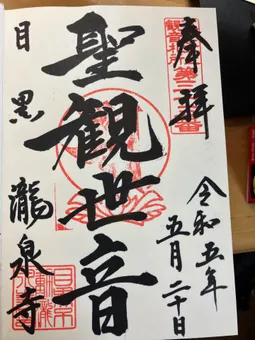 奉拝
令和五年
五月二十日
聖観世音
目黒
瀧泉寺